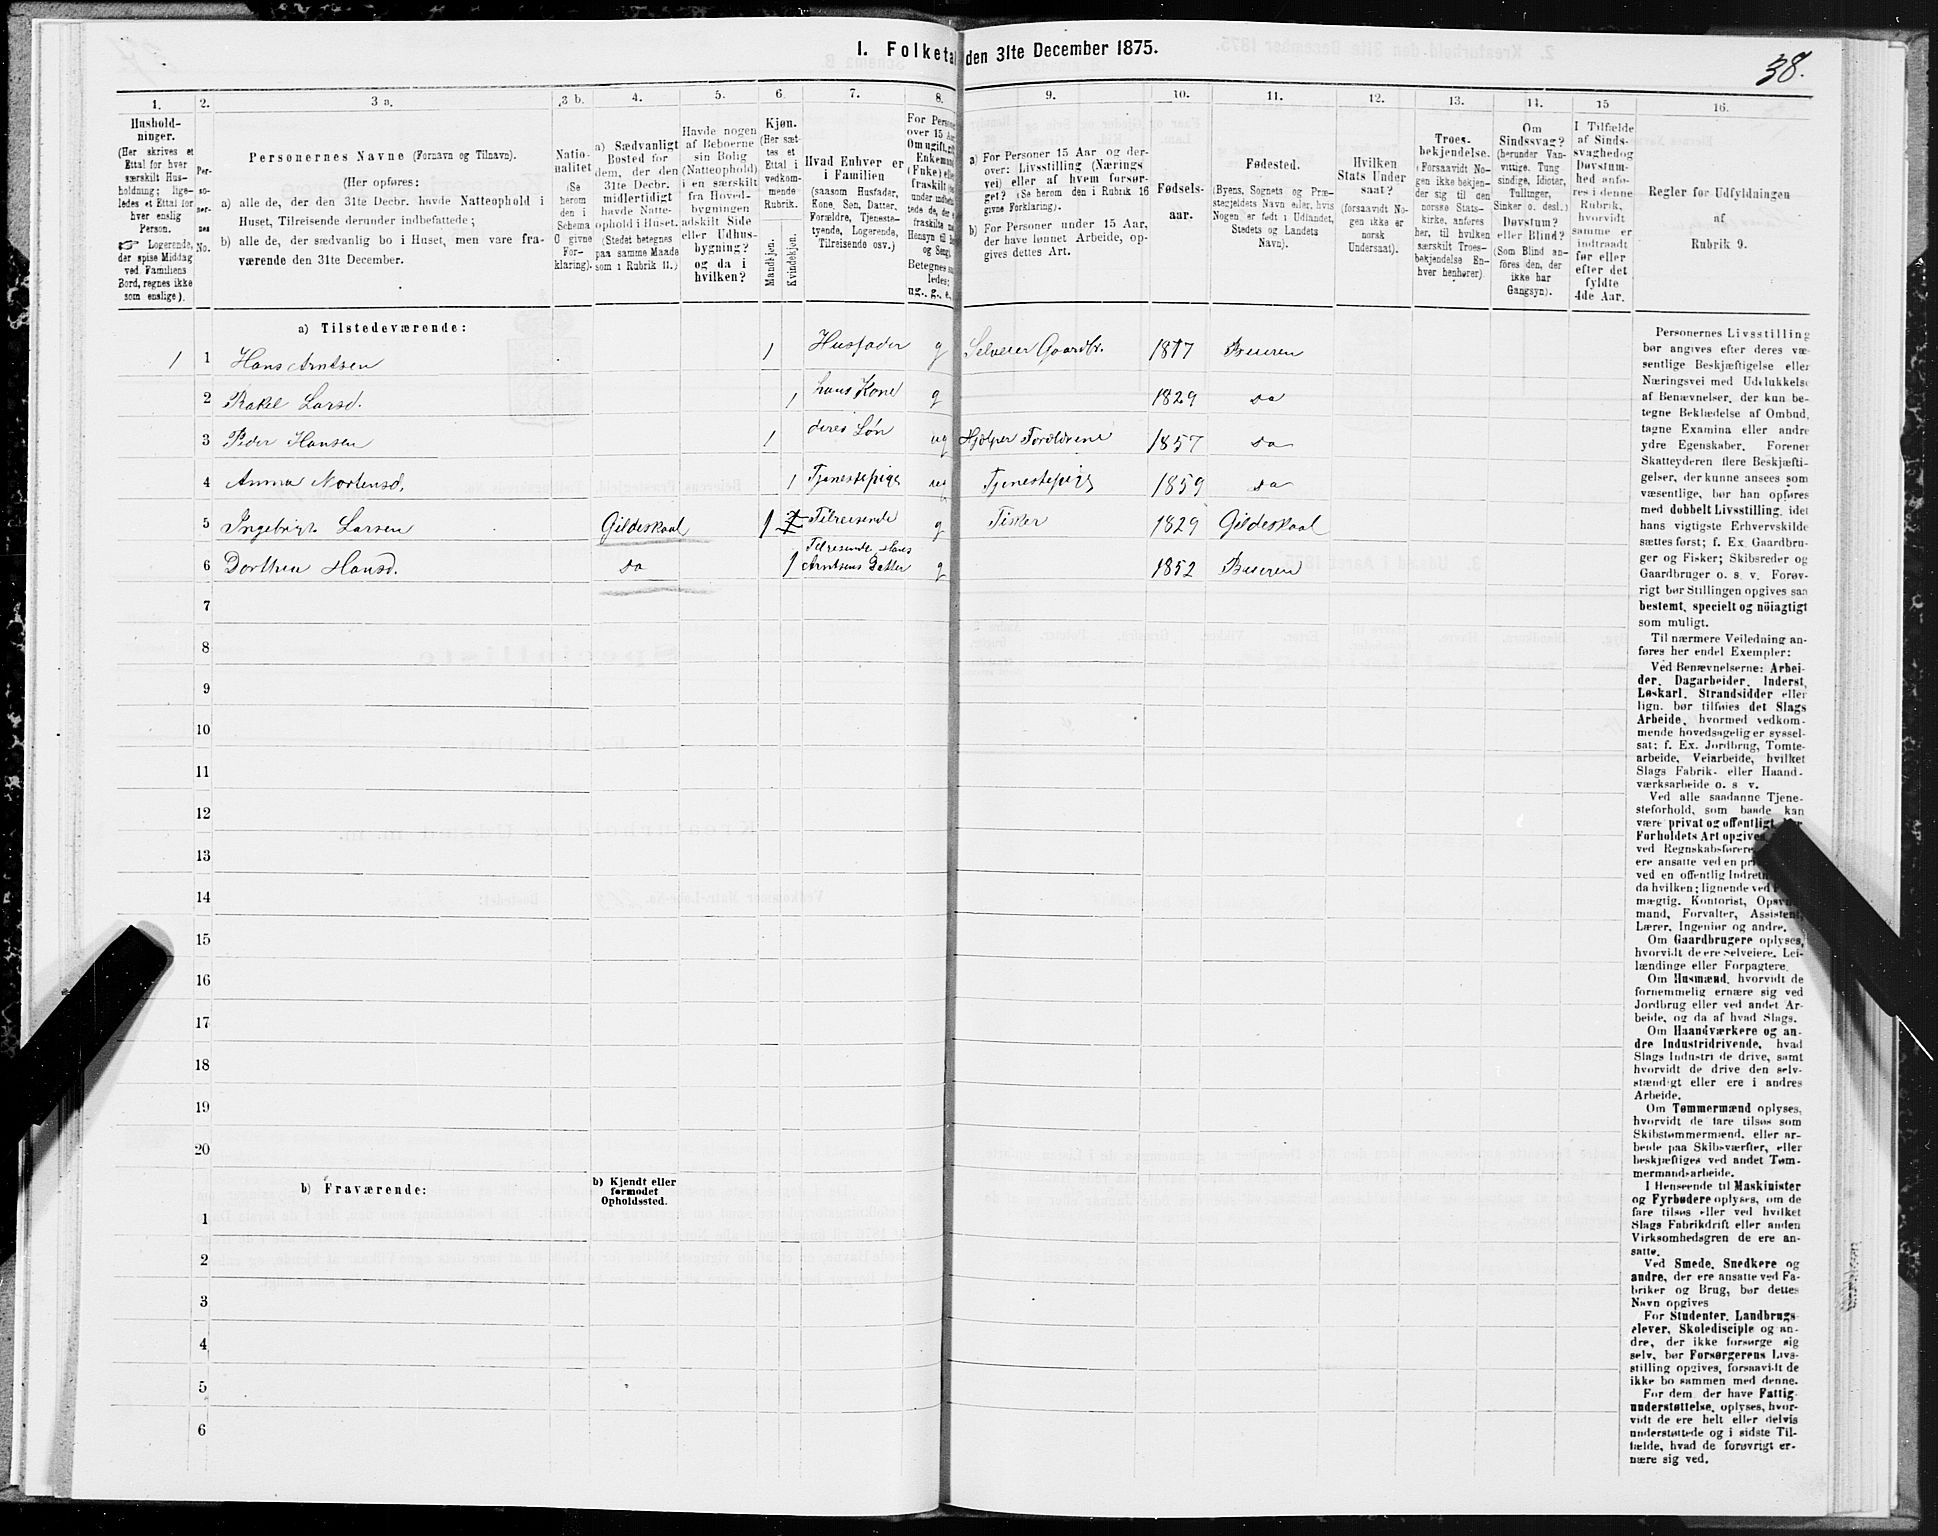 I. Folketal den 31te December 1875.
38.
1. 2. 3 a. 3 b. 4. 5. 6. 7. 8. 9. 10. 11. 12. 13. 14. 15 16.
Hushold-
ninger.
(Her skrives et
Ettal for hver
særskilt Hus-
holdning; lige-
ledes et Ettal for
hver enslig
Person.
☞ Logerende,
der spise Middag
ved Familiens
Bord, regnes ikke
som enslige).
Per-
so-
ner-
nes
No.
Personernes Navne (Fornavn og Tilnavn).
(Her opføres:
a) alle de, der den 31te Decbr. havde Natteophold i
Huset, Tilreisende derunder indbefattede;
b) alle de, der sædvanlig bo i Huset, men vare fra-
værende den 31te December.
Natio-
nalitet
(Se
herom
den i
Schema
O givne
For-
klaring).
a) Sædvanligt
Bosted for
dem, der den
31te Decbr.
midlertidigt
havde Natte-
ophold i Huset.
(Stedet betegnes
paa samme Maade
som i Rubrik II.)
Havde nogen
af Beboerne
sin Bolig
(Natteophold)
i en særskilt
fra Hoved-
bygningen
adskilt Side
eller Udhus-
bygning?
og da i
hvilken?
Kjøn.
(Her sæt-
tes et
Ettal i
vedkom-
mende
Rubrik.
Mandkjøn.
Kvindekjøn.
Hvad Enhver er
i Familien
(saasom Husfader,
Kone, Søn, Datter,
Forældre, Tjeneste-
tyende, Logerende,
Tilreisende osv.)
For Persone
over 15 Aar
Om ugift, gift
Enkemand
(Enke) eller
fraskilt
Betegnes saa
ledes:
ug., g., e.,
a) For Personer 15 Aar og der-
over: Livsstilling (Nærings
vei) eller af hvem forsør-
get? (Se herom den i Rubrik 16
givne Forklaring).
b) For Personer under 15 Aar,
der have lønnet Arbeide, op-
gives dettes Art.
Fødsels-
aar.
Fødested.
(Byens, Sognets og Præ-
stegjeldets Navn eller, hvis
Nogen er født i Udlandet,
Stedets og Landets
Navn).
Hvilken
Stats Under
saat?
(forsaavidt No-
gen ikke er
norsk
Undersaat).
Troes-
bekjendelse.
(Forsaavidt No-
gen ikke bekjen-
der sig til den
norske Stats-
kirke, anføres
her, til hvilken
særskilt Troes-
bekjendelse En-
hver henhører)
Om
Sindssvag?
(herunder Van-
vittige, Tung
sindige, Idioter,
Tullinger,
Sinker o. desl.)
Døvstum?
eller Blind?
(Som Blind an-
føres den, der
ikke har
Gangsyn).
I Tilfælde
af Sinds-
svaghed og
Døvstum-
hed anfø-
res i denne
Rubrik,
hvorvidt
samme er
indtraadt
før eller
efter det
fyldte
4de Aar.
Regler for Udfyldningen
af
Rubrik 9.
a) Tilstedeværende:
1 1 Hans Arntsen 1 Husfader g Selveier Gaardbr. 1817 Beieren
2 Rakel Larsd. 1 hans Kone g 1829 da
3 Peder Hansen 1 deres Søn ug Hjælper Forældrene 1857 da
4 Anna Mortensd. 1 Tjenestepige ug Tjenestepige 1859 da
5 Ingebrigt Larsen Gildeskaal 1 Tilreisende g Fisker 1829 Gildeskaal
6 Dorthea Hansd. da 1 Tilreisende, Hans
Arntsens Datter g 1852 Beieren
7
8
9
10
11
12
13
14
15
16
17
18
19
20
b) Fraværende:
b) Kjendt eller
formodet
Opholdssted.
1
2
3
4
5
6
Personernes Livsstilling
bør angives efter deres væ-
sentlige Beskjæftigelse eller
Næringsvei med Udelukkelse
af Benævnelser, der kun be-
tegne Beklædelse af Ombud,
tagne Examina eller andre
ydre Egenskaber. Forener
Skatteyderen flere Beskjæfti-
gelser, der kunne ansees som
væsentlige, bør han opføres
med dobbelt Livsstilling, idet
hans vigtigste Erhvervskilde
sættes først; f. Ex. Gaardbru-
ger og Fisker; Skibsreder og
Gaardbruger o. s. v. Forøv-
rigt bør Stillingen opgives saa
bestemt, specielt og nöiagtigt
som muligt.
Til nærmere Veiledning an-
føres her endel Exempler:
Ved Benævnelserne: Arbei-
der, Dagarbeider, Inderst,
Løskarl, Strandsidder eller
lign. bør tilføies det Slags
Arbeide, hvormed vedkom-
mende hovedsagelig er syssel-
sat; f. Ex. Jordbrug, Tomte-
arbeide, Veiarbeide, hvilket
Slags Fabrik- eller Haand-
værksarbeide o. s. v.
Ved alle saadanne Tjene-
steforhold, som baade kan
være privat og offentligt, bør
Forholdets Art opgives,
ved Regnskabsførere,
ere ansatte ved en
ved en offentlig
da hvilken; lignende ved
mægtig, Kontorist, Opsyns-
mand, Forvalter, Assistent,
Lærer, Ingeniør og andre.
Om Gaardbrugere oplyses,
hvorvidt de ere Selveiere, Lei-
lændinge eller Forpagtere.
Om Husmænd, hvorvidt de
fornemmelig ernære sig ved
Jordbrug eller ved andet Ar-
beide, og da af hvad Slags.
Om Haandværkere og an-
dre Industridrivende, hvad
Slags Industri de drive, samt
hvorvidt de drive den selv-
stændigt eller ere i andres
Arbeide.
Om Tømmermænd oplyses,
hvorvidt de fare tilsøs som
Skibstømmermænd, eller ar-
beide paa Skibsværfter, eller
beskjæftiges ved andet Tøm-
mermandsarbeide.
I Henseende til Maskinister
og Fyrbødere oplyses, om de
fare tilsøs eller ved hvilket
Slags Fabrikdrift eller anden
Virksomhedsgren de ere an-
satte.
Ved Smede, Snedkere og
andre, der ere ansatte ved Fa-
briker og Brug, bør dettes
Navn opgives
For Studenter, Landbrugs-
elever, Skoledisciple og an-
dre, der ikke forsørge sig
selv, bør Forsørgerens Livs-
stilling opgives, forsaavidt de
ikke bo sammen med denne.
For dem, der have Fattig-
understøttelse, oplyses, hvor-
vidt de ere helt eller delvis
understøttede og i sidste Til-
fælde, hvad de forøvrigt er-
nære sig ved.